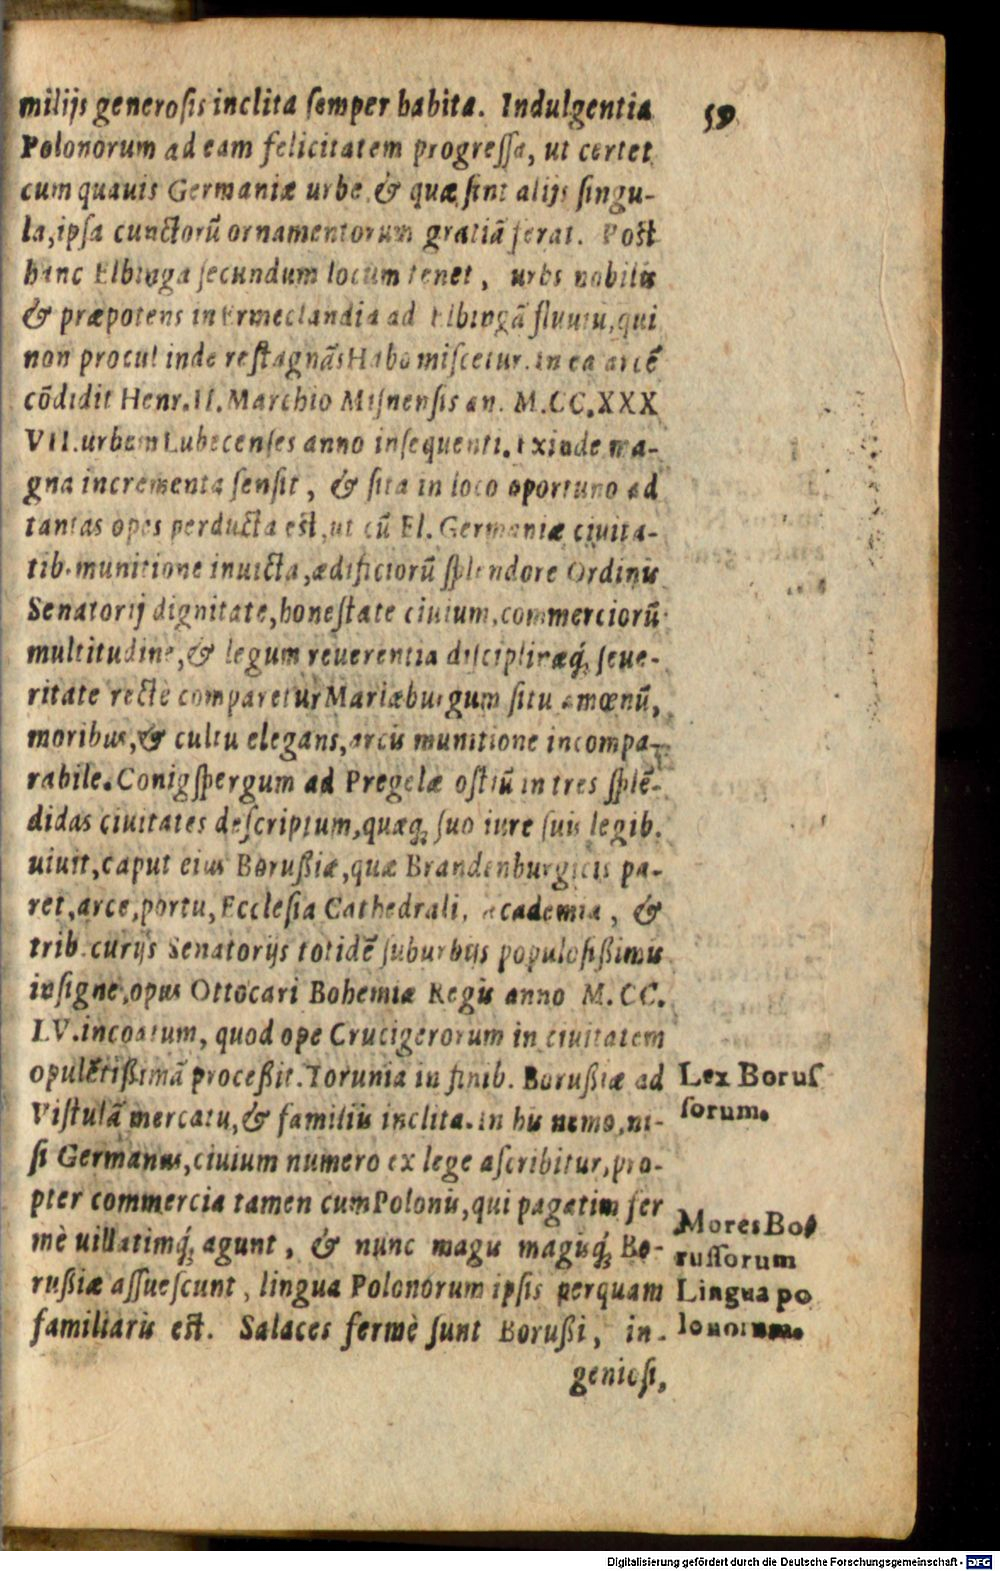 milijs generosis inclita semper habita. Indulgentia
59
Polonorum ad eam felicitatem progressa, ut certet
cum quauis Germaniæ urbe & quæ sint alijs singu-
la, ipsa cunctorū ornamentorum gratiā ferat. Post
hanc Elbinga secundum locum tenet, urbs nobilis
& præpotens in Ermeclandia ad Elbingā fluuiū, qui
non procul inde restagnās Habo miscetur. in ea arcē
cōdidit Henr. II. Marchio Misnensis an. M.CC.XXX
VII. urbem Lubecenses anno insequenti. Exinde ma-
gna incrementa sensit, & sita in loco oportuno ad
tantas opes perducta est, ut cū El. Germaniæ ciuita-
tib. munitione inuicta, ædificiorū splendore Ordinis
Senatorij dignitate, honestate ciuium, commerciorū
multitudine, & legum reuerentia disciplinæq́; seue-
ritate recte comparetur Mariæburgum situ amœnū,
moribus, & cultu elegans, arcis munitione incompa-
rabile. Conigspergum ad Pregelæ ostiū in tres splē-
didas ciuitates descriptum, quæq; suo iure suis legib.
uiuit, caput eius Borußiæ, quæ Brandenburgicis pa-
ret, arce, portu, Ecclesia Cathedrali, academia, &
trib. curijs Senatorijs totidē suburbijs populosißimis
insigne, opus Ottocari Bohemiæ Regis anno M.CC.
LV. incoatum, quod ope Crucigerorum in ciuitatem
opulētißimā proceßit. Torunia in finib. Borußiæ ad
Vistulā mercatu, & familiis inclita. in his nemo, ni-
si Germanus, ciuium numero ex lege ascribitur, pro-
pter commercia tamen cum Polonis, qui pagatim fer
mè uillatimq́; agunt, & nunc magis magisq́; Bo-
rußiæ assuescunt, lingua Polonorum ipsis perquam
familiaris est. Salaces fermè sunt Borußi, in-
geniosi,
Lex Borus
sorum.
Mores Bo
russorum
Lingua po
lonorum.
Digitalisierung gefördert durch die Deutsche Forschungsgemeinschaft - DFG